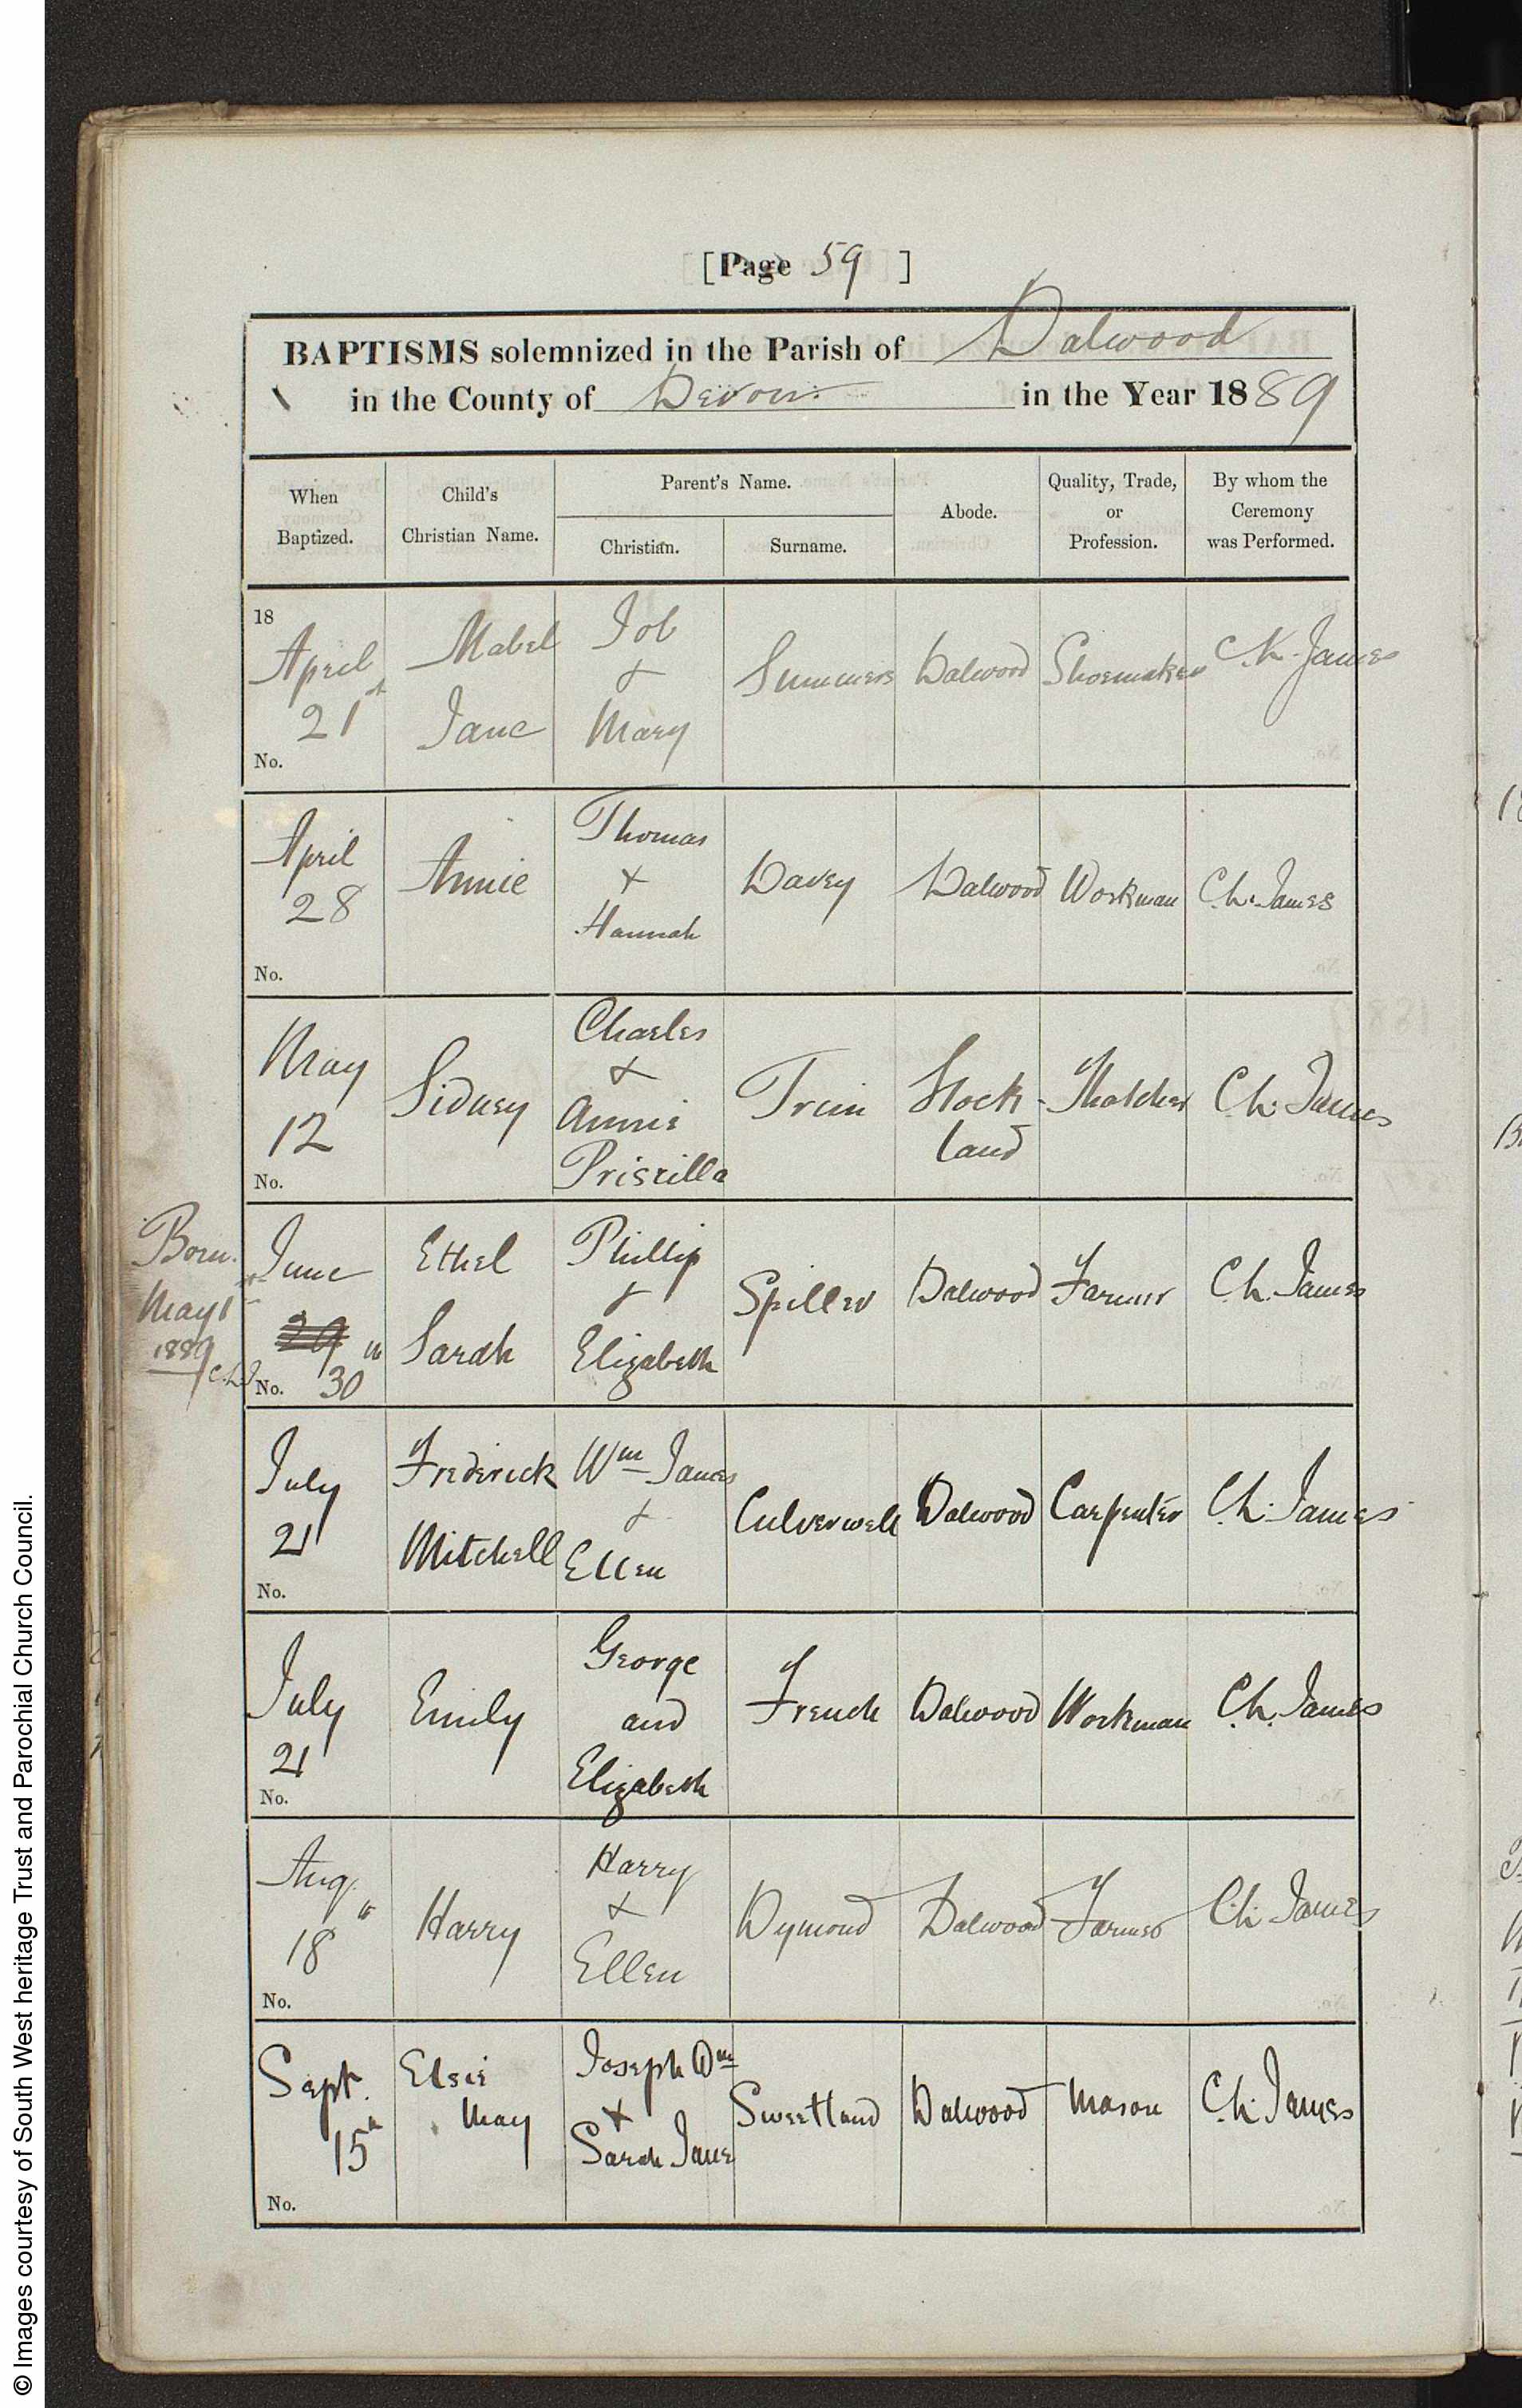 [Page 59 ]
BAPTISMS solemnized in the Parish of Dalwood
in the County of Devon in the Year 1889
When Baptized.
Child's Christian Name.
Parent's Name.
Christian.
Surname.
Abode.
Quality, Trade, or Profession.
By whom the Ceremony was Performed.
18
April 21st
No.
Mabel Jane
Job & Mary
Summers
Dalwood
Shoemaker
James
April 28
No.
Annie
Thomas & Hannah
Davey
Dalwood
Workman
Ch. James
May 12
No.
Sidney
Charles & Annie Priscilla
Stockland
Thatcher
Ch. James
Born May 1st 1889
June 29 th 30
No.
Ethel Sarah
Phillip & Elizabeth
Spiller
Dalwood
Farmer
Ch. James
July 21
No.
Frederick Mitchell
Wm James & Ellen
Culverwell
Dalwood
Carpenter
Ch. James
July 21
No.
Emily
George and Elizabeth
French
Dalwood
Workman
Ch. James
Aug. 18th
No.
Harry
Harry & Ellen
Dymond
Dalwood
Farmer
Ch. James
Sept. 15th
No.
Elsie May
Joseph Wm & Sarah Jane
Sweetland
Dalwood
Mason
Ch. James
© Images courtesy of South West heritage Trust and Parochial Church Council.